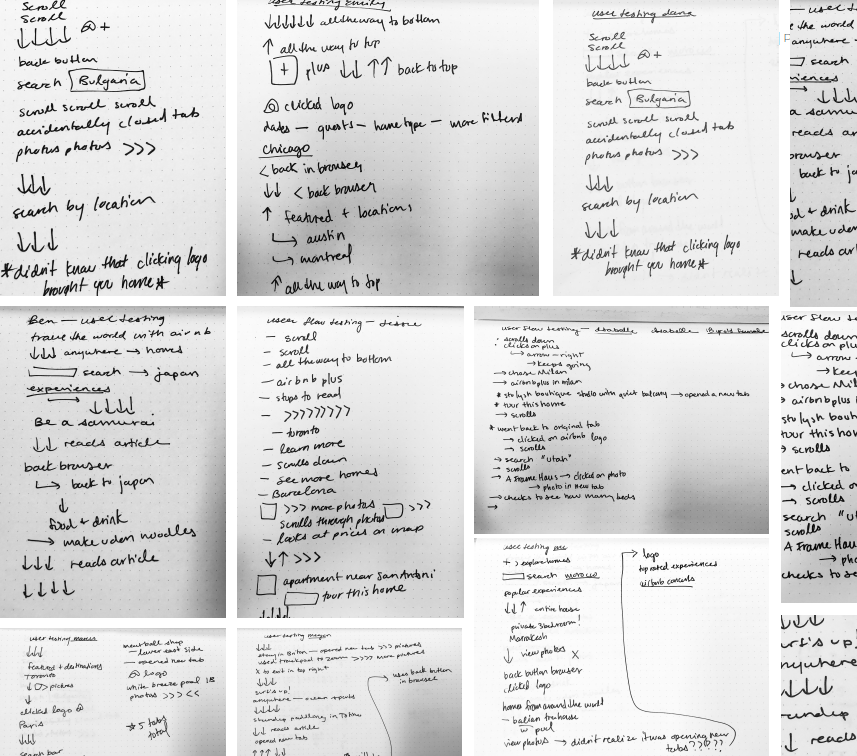 Scroll
Scroll
↓↓↓↓ +
back button
search Bulgaria
scroll scroll scroll
accidentally closed tab
photos photos >>>
↓↓↓
search by location
↓↓↓
*didn't know that clicking logo
brought you home*
user testing Emily
↓↓↓↓↓↓ all the way to bottom
↑ all the way to top
+ plus ↓↓ ↑↑ back to top
clicked logo
dates — guests — home type — more filters
Chicago
< back in browser
↓↓ < back browser
↑ featured + locations
↳ austin
↳ montreal
↑ all the way to top
user testing dana
Scroll
Scroll
↓↓↓↓ +
back button
search Bulgaria
scroll scroll scroll
accidentally closed tab
photos photos >>>
↓↓↓
search by location
↓↓↓
*didn't know that clicking logo
brought you home*
the world
anywhere
search
↓↓↓
reads a
back to ja
make uden
reads art
Ben — user testing
travel the world with airbnb
↓↓↓ anywhere → homes
search → japan
experiences
→ ↓↓↓↓
Be a samurai
↓↓ reads article
back browser
↳ back to japan
↓
food & drink
→ make uden noodles
↓↓↓ reads article
↓↓↓↓
user flow testing —
— scroll
— scroll
— all the way to bottom
— airbnb plus
— stops to read
— >>>>>>>>>
— toronto
— learn more
— scrolls down
— see more homes
— Barcelona
>>> more photos >>>
scrolls through photos
— looks at prices on map
↓↑ >>>
apartment near San Antoni
tour this home
↓↓↓↓
user flow testing —
scrolls down
clicks on plus
↳ arrow — right
→ keeps going
→ chose Milan
→ airbnb plus in milan
* stylish boutique studio with quiet balcony → opened a new tab
* tour this home
→ scrolls
* went back to original tab
→ clicked on airbnb logo
→ scrolls
→ search "utah"
→ scrolls
→ A Frame Haus → clicked on photo
→ photo in new tab
→ checks to see how many beds
→
user flow
scrolls down
clicks on p
↳ arrow
→ keep
chose Mila
airbnb plus
stylish bou
tour this hom
→ scrolls
ent back to
→ clicked o
→ scrolls
search "u
scrolls
A Frame Hau
→ pho
checks to
user testing
+ > explore homes
search morocco
popular experiences
↓↓↑ entire house
private 3 bedroom!
Marrakesh
↓ view photos X
back button browser
clicked logo
homes from around the world
— balian treehouse
w/ pool
view photos → didn't realize it was opening new
tabs????
→ logo
top rated experiences
airbnb concerts
user testing
↓↓↓
features + destinations
Toronto
↓ > pictures
↓
clicked logo
Paris
↓↓
search bar
meatball shop
— lower east side
— opened new tab
logo
white breeze pool 1B
photos >>> <<
* 5 tabs
total
user testing megan
↓↓↓
— opened new tab >>> pictures
used trackpad to zoom >>>> more pictures
X to exit in top right
↓↓↓
surf's up!
↓↓↓↓↓
↓↓ reads article
opened new tab
uses back button
in browser
↓↓↓
urf's up!
nywhere
↓↓↓↓
reads